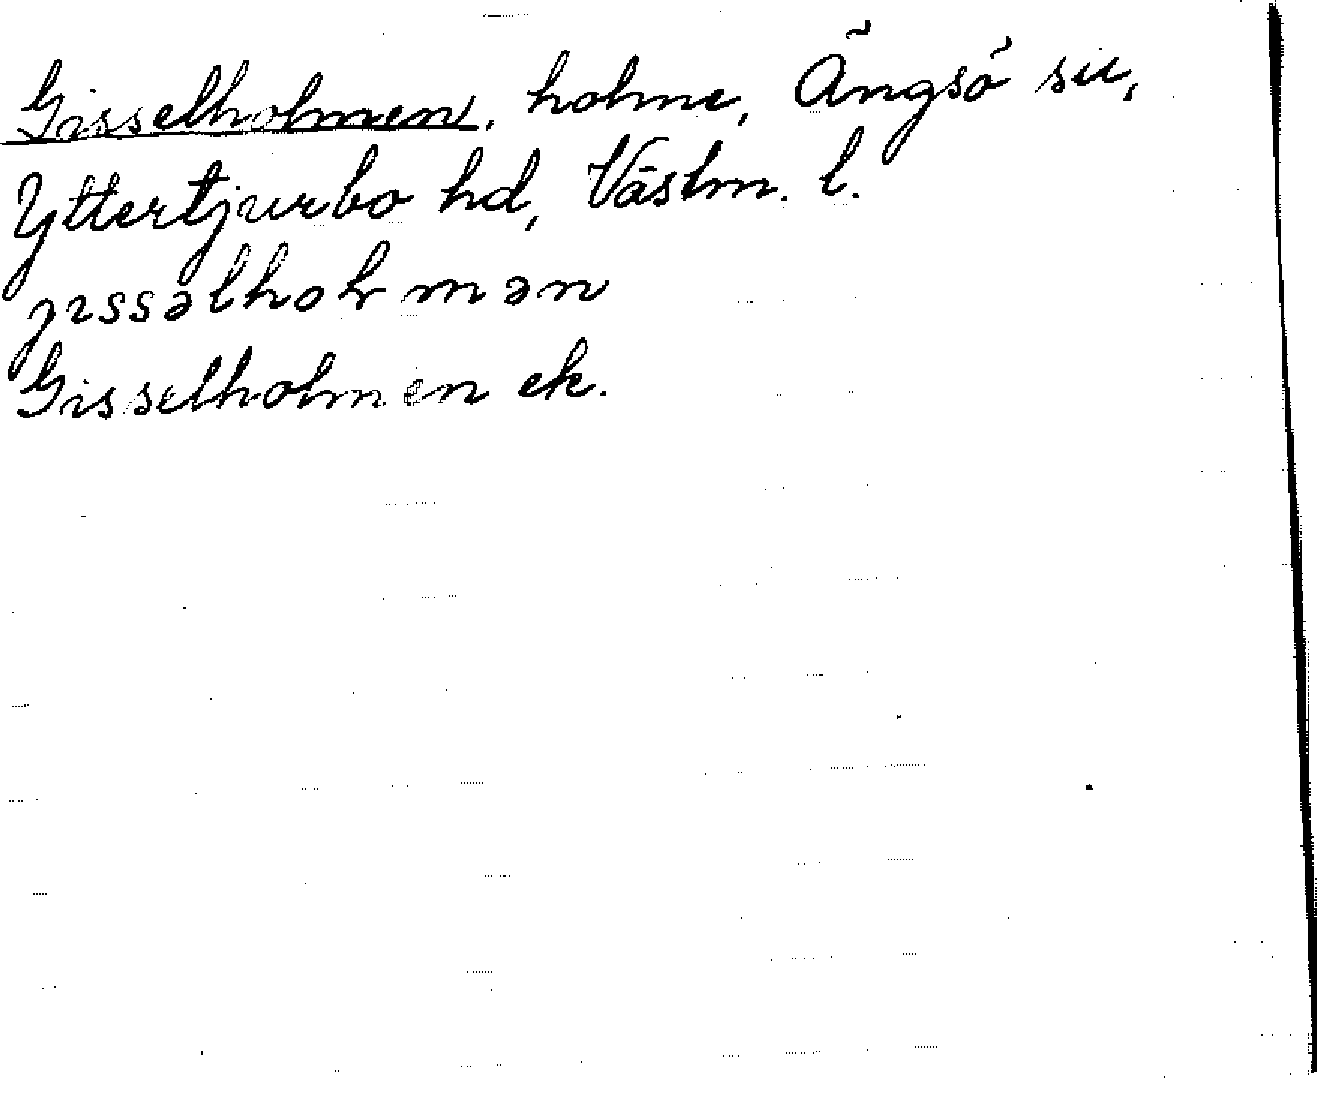 Gisselholmen, holme, Ängsö sn,
Yttertjurbo hd, Västm. l.
jissəlholmən
Gisselholmen ek.